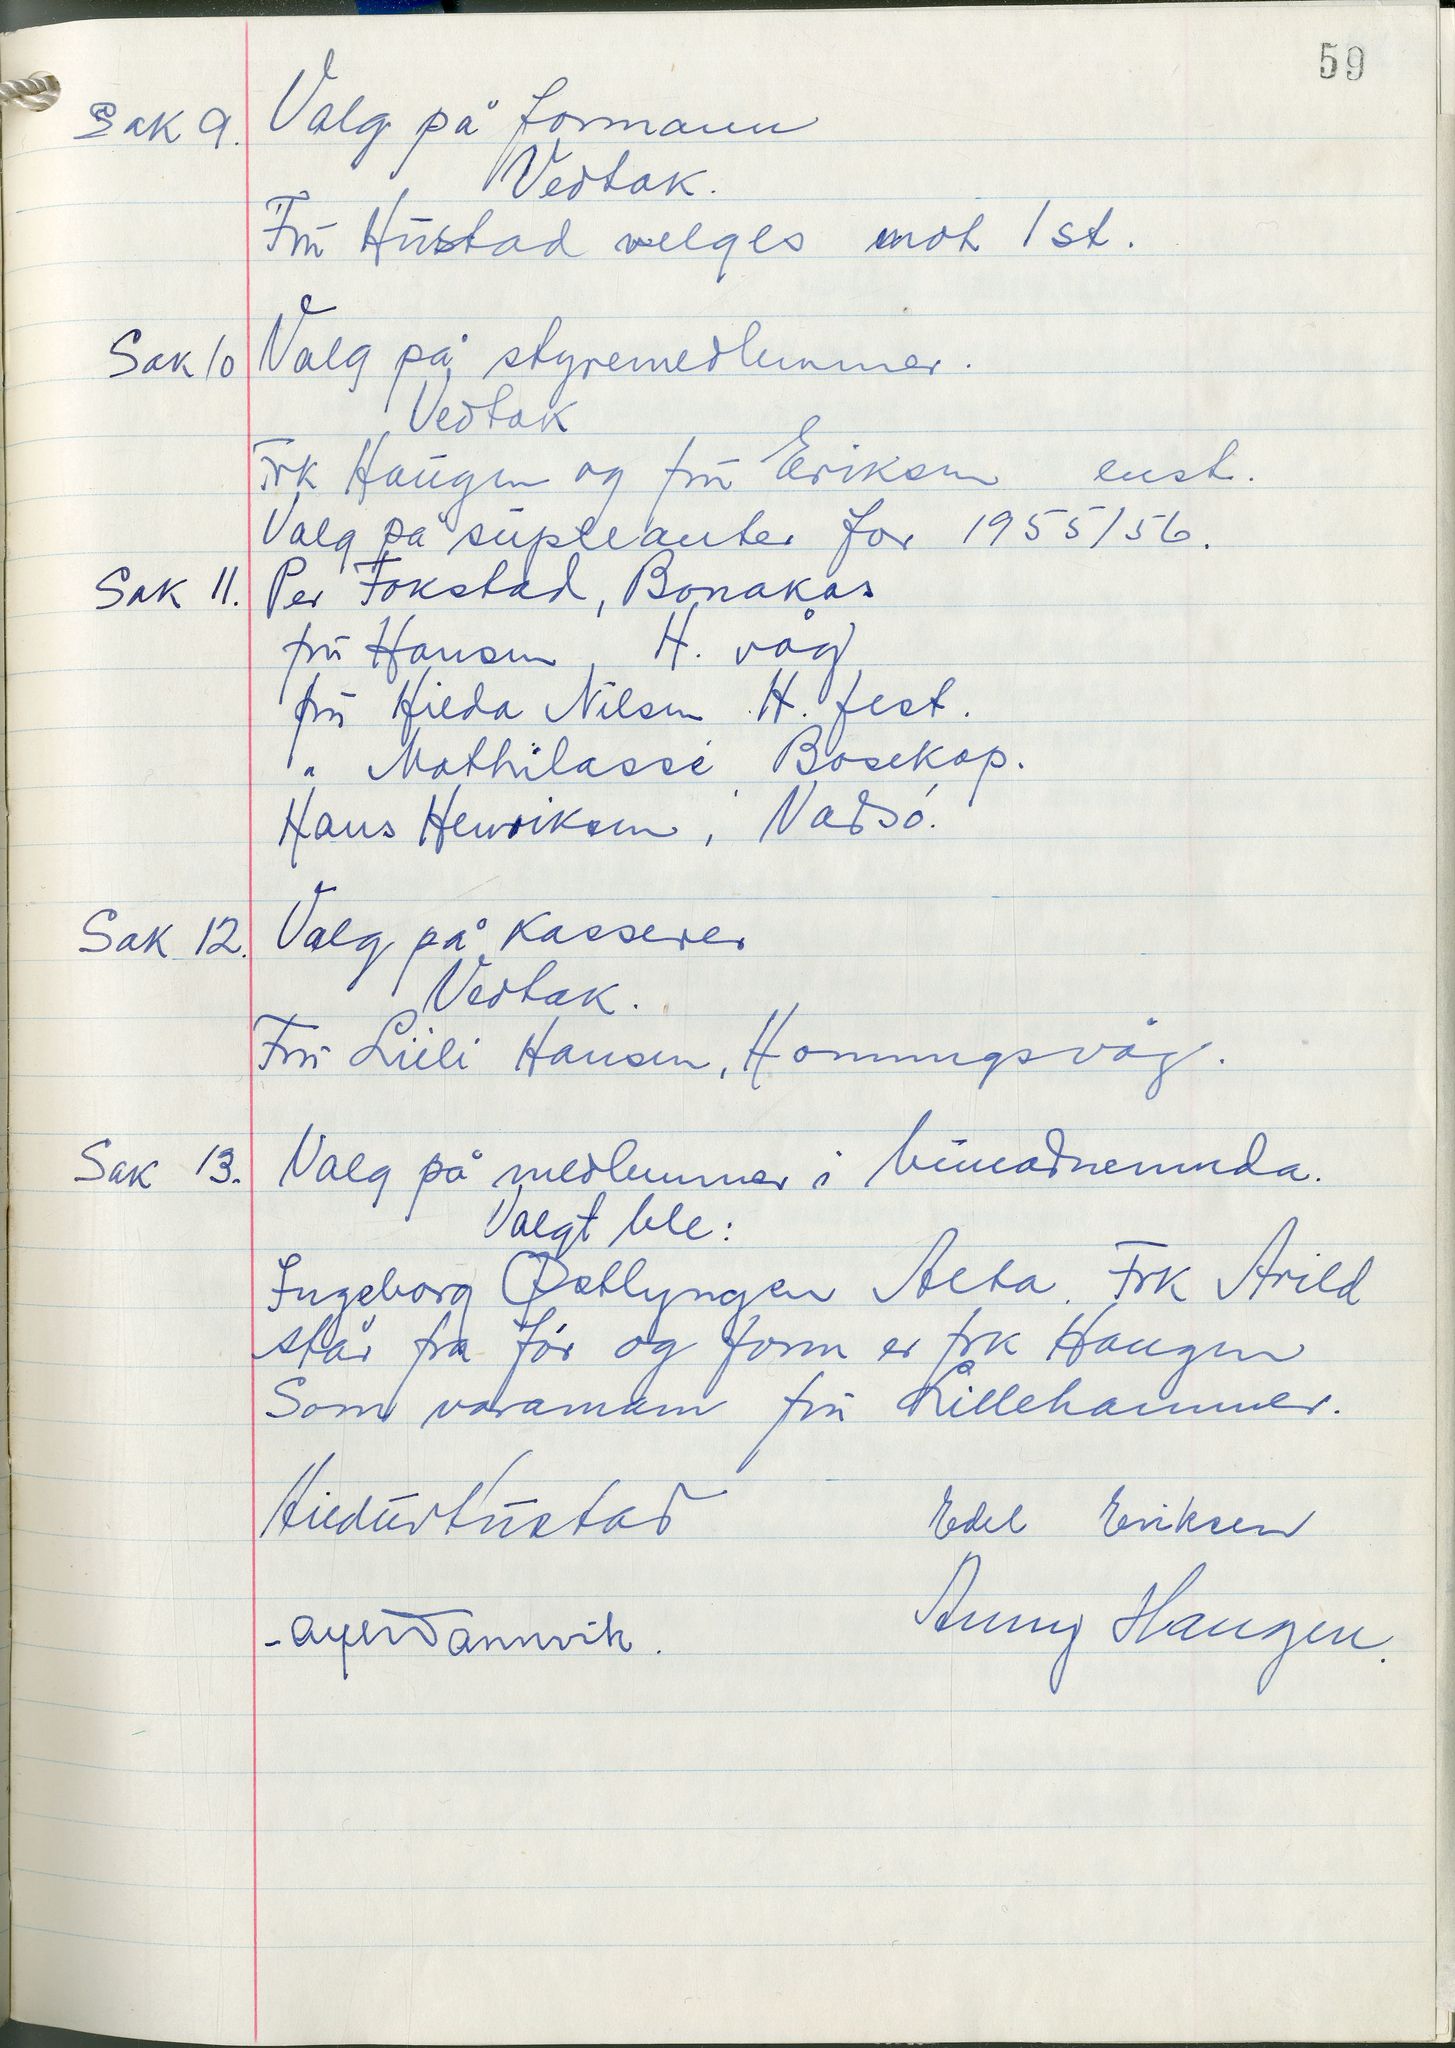 59
Sak 9. Valg på formann
Vedtak.
Fru Hustad velges mot 1 st.
Sak 10 Valg på styremedlemmer.
Vedtak
Frk Haugen og fru Eriksen enst.
Valg på supleanter for 1955/56.
Sak 11. Per Fokstad, Bonakas
fru Hansen, H. våg
fru Hilda Nilsen H. fest.
" Mathilassi Bosekop.
Hans Henriksen, Vadsö.
Sak 12. Valg på kasserer
Vedtak.
Fru Lilli Hansen, Honningsvåg.
Sak 13. Valg på medlemmer i bunadnemnda.
Valgt ble:
Ingeborg Østlyngen Alta. Frk Arild
står fra før og form er frk Haugen
Som varamann fru Lillehammer.
Hildur Hustad Edel Eriksen
Dannvik. Anny Haugen.